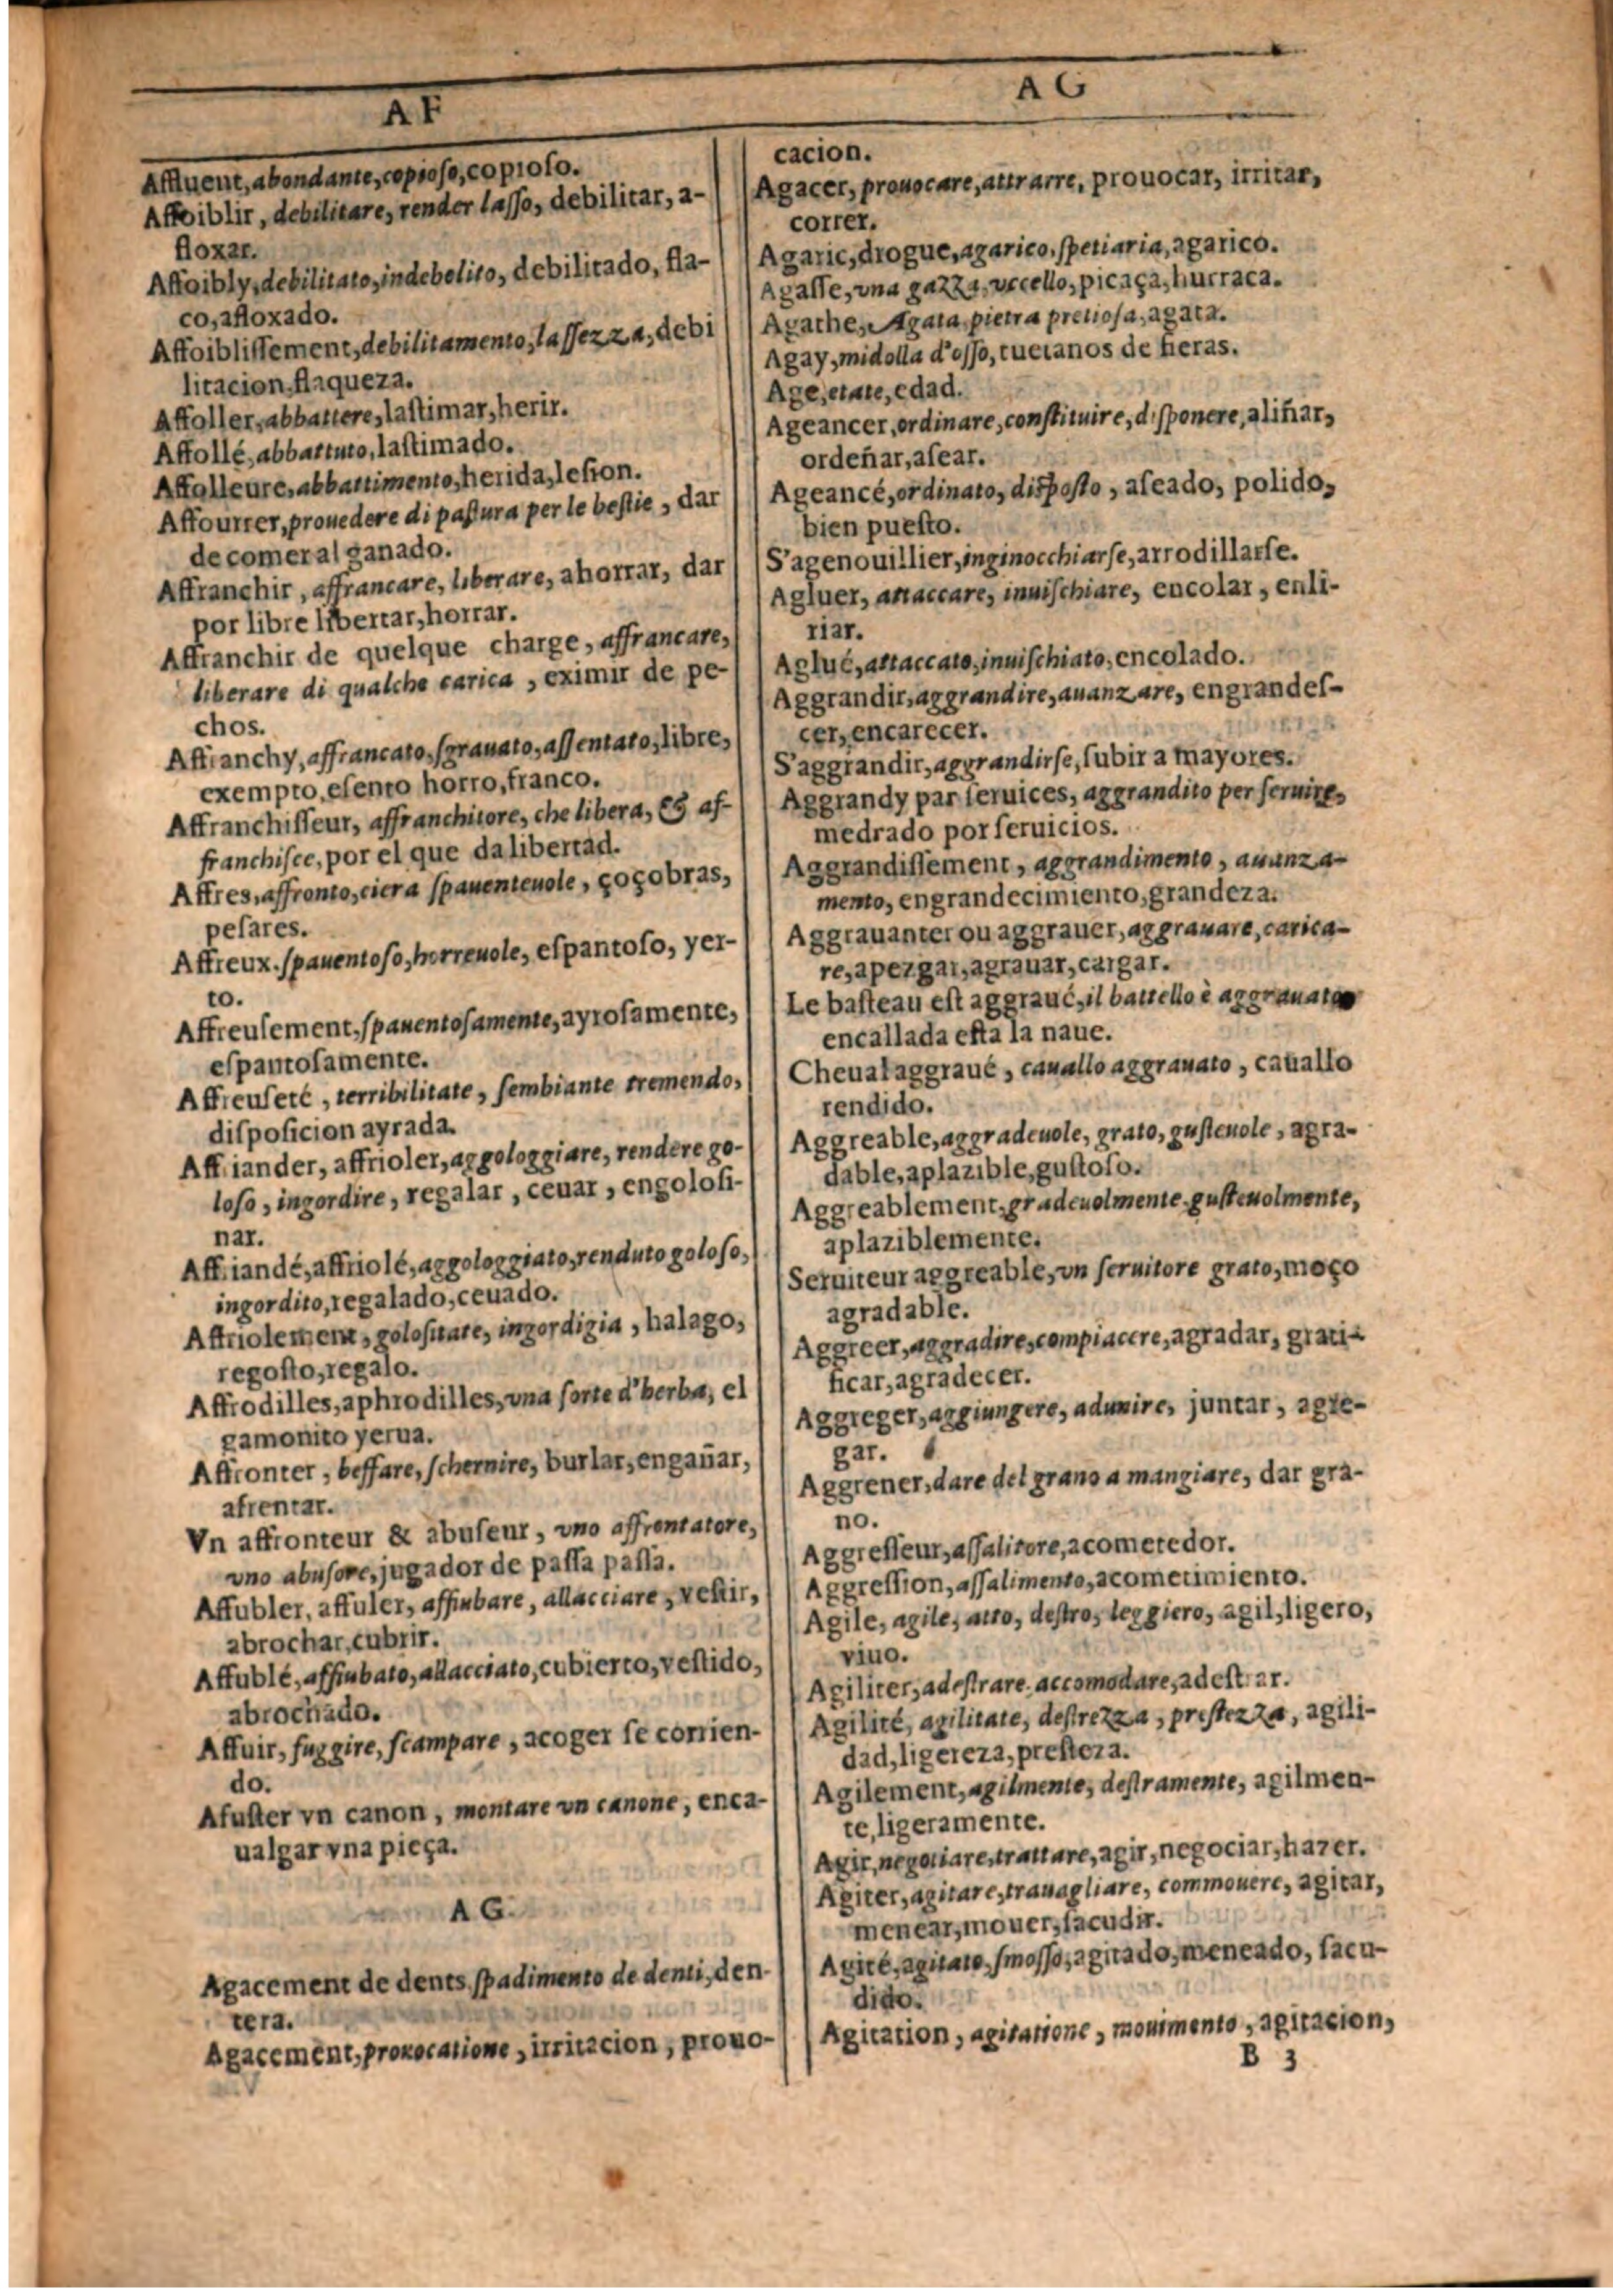 A F
Affluent, abondante, copioso, copioſo.
Affoiblir, debilitare, render laſſo, debilitar, a-
floxar.
Affoibly, debilitato, indebolito, debilitado, fla-
co, afloxado.
Affoibliſſement, debilitamento, laſſezza, debi
litacion, flaqueza.
Affoller, abbattere, laſtimar, herir.
Affollé, abbattuto, laſtimado.
Affolleure, abbattimento, herida, leſion.
Affourrer, prouedere di paſtura per le beſtie, dar
de comer al ganado.
Affranchir, affrancare, liberare, ahorrar, dar
por libre libertar, horrar.
Affranchir de quelque charge, affrancare,
liberare di qualche carica, eximir de pe-
chos.
Affranchy, affrancato, ſgrauato, aſſentato, libre,
exempto, eſento horro, franco.
Affranchiſſeur, affranchitore, che libera, & af-
franchiſce, por el que da libertad.
Affres, affronto, ciera ſpauenteuole, çoçobras,
peſares.
Affreux. ſpauentoſo, horreuole, eſpantoſo, yer-
to.
Affreuſement, ſpauentoſamente, ayroſamente,
eſpantoſamente.
Affreuſeté, terribilitate, ſembiante tremendo,
diſpoſicion ayrada.
Affriander, affrioler, aggologgiare, rendere go-
loſo, ingordire, regalar, ceuar, engoloſi-
nar.
Affriandé, affriolé, aggologgiato, renduto goloſo,
ingordito, regalado, ceuado.
Affriolement, goloſitate, ingordigia, halago,
regoſto, regalo.
Affrodilles, aphrodilles, vna ſorte d'herba, el
gamonito yerua.
Affronter, beffare, ſchernire, burlar, engañar,
afrentar.
Vn affronteur & abuſeur, vno affrontatore,
vno abuſore, jugador de paſſa paſſa.
Affubler, affuler, affiubare, allacciare, veſtir,
abrochar, cubrir.
Affublé, affiubato, allacciato, cubierto, veſtido,
abrochado.
Affuir, fuggire, ſcampare, acoger ſe corrien-
do.
Afuſter vn canon, montare vn canone, enca-
ualgar vna pieça.
A G.
Agacement de dents, ſpadimento de denti, den-
tera.
Agacement, prouocatione, irritacion, prouo-
A G
cacion.
Agacer, prouocare, attrarre, prouocar, irritar,
correr.
Agaric, drogue, agarico, ſpetiaria, agarico.
Agaſſe, vna gazza, vccello, picaça, hurraca.
Agathe, Agata, pietra pretioſa, agata.
Agay, midolla d'oſſo, tuetanos de fieras.
Age, etate, edad.
Ageancer, ordinare, conſtituire, diſponere, aliñar,
ordeñar, aſear.
Ageancé, ordinato, diſpoſto, aſeado, polido,
bien pueſto.
S'agenouillier, inginocchiarſe, arrodillarſe.
Agluer, attaccare, inuiſchiare, encolar, enli-
riar.
Aglué, attaccato, inuiſchiato, encolado.
Aggrandir, aggrandire, auanzare, engrandeſ-
cer, encarecer.
S'aggrandir, aggrandirſe, ſubir a mayores.
Aggrandy par ſeruices, aggrandito per ſeruire,
medrado por ſeruicios.
Aggrandiſſement, aggrandimento, auanza-
mento, engrandecimiento, grandeza.
Aggrauanter ou aggrauer, aggrauare, carica-
re, apezgar, agrauar, cargar.
Le baſteau eſt aggraué, il battello è aggrauato
encallada eſta la naue.
Cheual aggraué, cauallo aggrauato, cauallo
rendido.
Aggreable, aggradeuole, grato, guſteuole, agra-
dable, aplazible, guſtoſo.
Aggreablement, gradeuolmente, guſteuolmente,
aplaziblemente.
Seruiteur aggreable, vn ſeruitore grato, moço
agradable.
Aggreer, aggradire, compiacere, agradar, grati-
ficar, agradecer.
Aggreger, aggiungere, adunire, juntar, agre-
gar.
Aggrener, dare del grano a mangiare, dar gra-
no.
Aggreſſeur, aſſalitore, acometedor.
Aggreſſion, aſſalimento, acometimiento.
Agile, agile, atto, deſtro, leggiero, agil, ligero,
viuo.
Agiliter, adeſtrare, accomodare, adeſtrar.
Agilité, agilitate, deſtrezza, preſtezza, agili-
dad, ligereza, preſteza.
Agilement, agilmente, deſtramente, agilmen-
te, ligeramente.
Agir, negotiare, trattare, agir, negociar, hazer.
Agiter, agitare, trauagliare, commouere, agitar,
menear, mouer, ſacudir.
Agité, agitato, ſmoſſo, agitado, meneado, ſacu-
dido.
Agitation, agitatione, mouimento, agitacion,
B 3